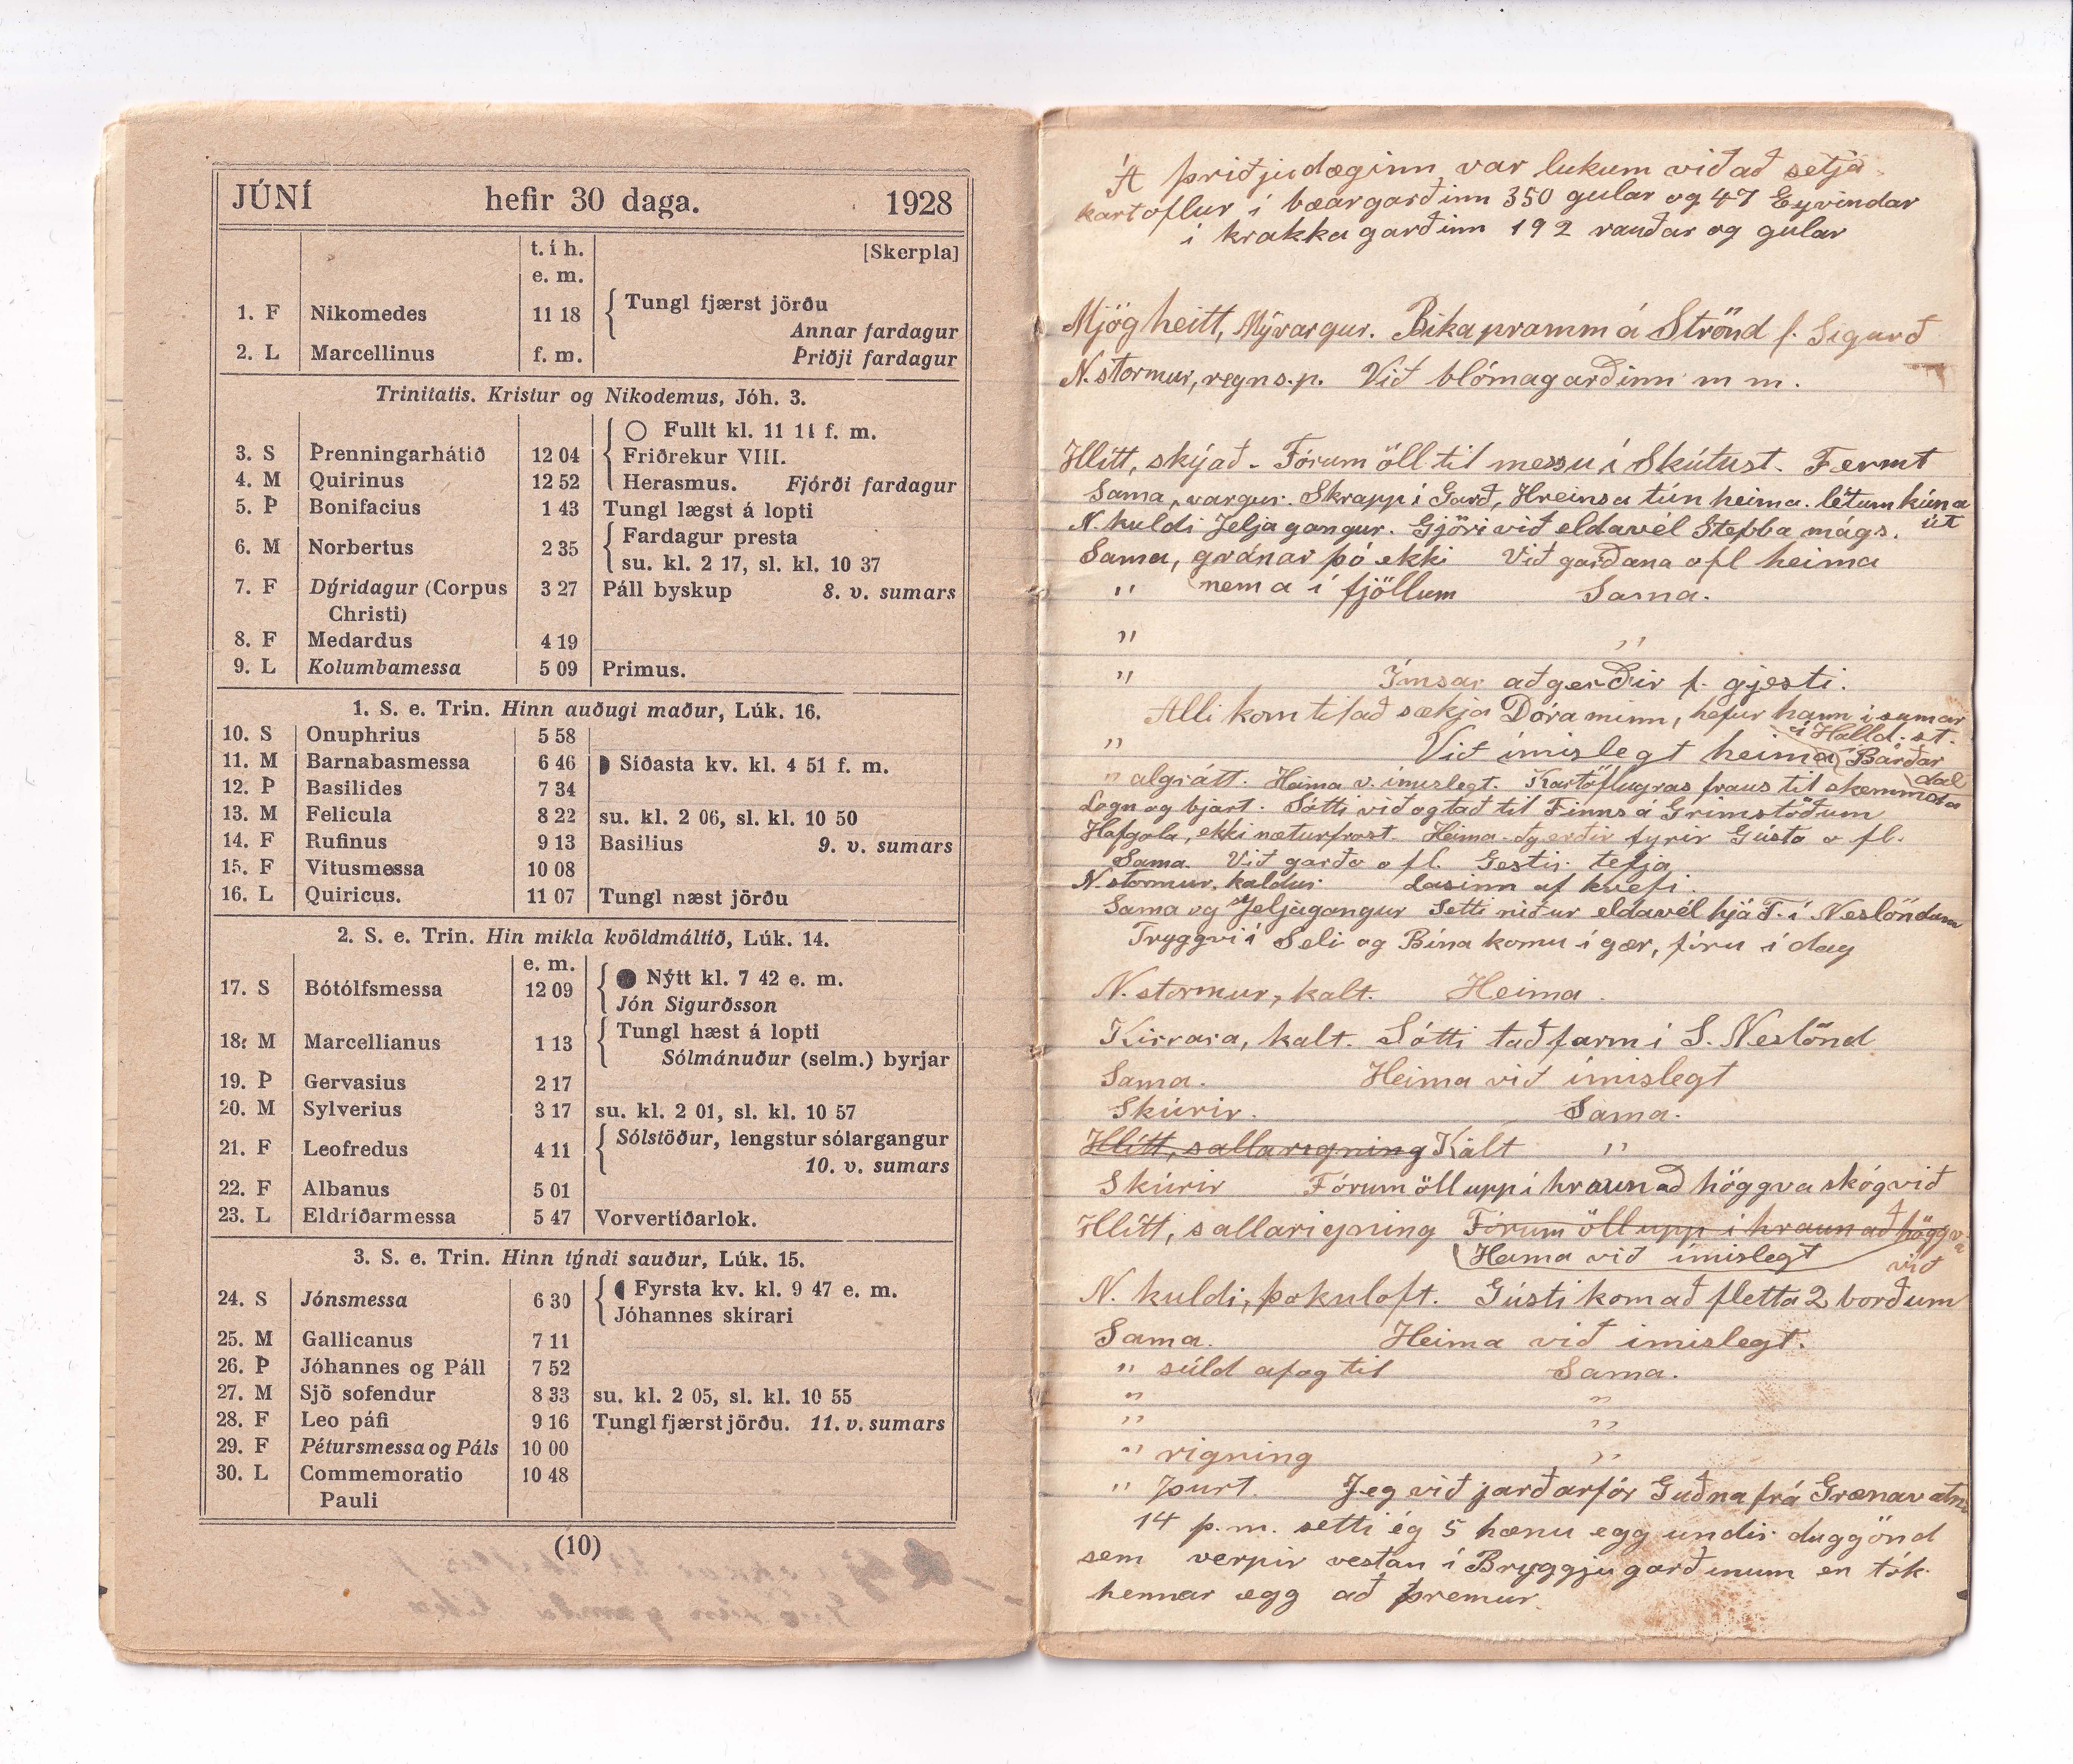 JÚNÍ hefir 30 daga. 1928
t. í h. [Skerpla]
e. m.
1. F Nikomedes 11 18 Tungl fjærst jörðu
Annar fardagur
2. L Marcellinus f. m. Þriðji fardagur
Trinitatis. Kristur og Nikodemus, Jóh. 3.
Fullt kl. 11 11 f. m.
3. S Þrenningarhátíð 12 04 Friðrekur VIII.
4. M Quirinus 12 52 Herasmus. Fjórði fardagur
5. Þ Bonifacius 1 43 Tungl lægst á lopti
6. M Norbertus 2 35 Fardagur presta
su. kl. 2 17, sl. kl. 10 37
7. F Dýridagur (Corpus 3 27 Páll byskup 8. v. sumars
Christi)
8. F Medardus 4 19
9. L Kolumbamessa 5 09 Primus.
1. S. e. Trin. Hinn auðugi maður, Lúk. 16.
10. S Onuphrius 5 58
11. M Barnabasmessa 6 46 Síðasta kv. kl. 4 51 f. m.
12. Þ Basilides 7 34
13. M Felicula 8 22 su. kl. 2 06, sl. kl. 10 50
14. F Rufinus 9 13 Basilius 9. v. sumars
15. F Vitusmessa 10 08
16. L Quiricus. 11 07 Tungl næst jörðu
2. S. e. Trin. Hin mikla kvöldmáltíð, Lúk. 14.
e. m. Nýtt kl. 7 42 e. m.
17. S Bótólfsmessa 12 09 Jón Sigurðsson
18. M Marcellianus 1 13 Tungl hæst á lopti
Sólmánuður (selm.) byrjar
19. Þ Gervasius 2 17
20. M Sylverius 3 17 su. kl. 2 01, sl. kl. 10 57
21. F Leofredus 4 11 Sólstöður, lengstur sólargangur
10. v. sumars
22. F Albanus 5 01
23. L Eldríðarmessa 5 47 Vorvertíðarlok.
3. S. e. Trin. Hinn týndi sauður, Lúk. 15.
24. S Jónsmessa 6 30 Fyrsta kv. kl. 9 47 e. m.
Jóhannes skírari
25. M Gallicanus 7 11
26. Þ Jóhannes og Páll 7 52
27. M Sjö sofendur 8 33 su. kl. 2 05, sl. kl. 10 55
28. F Leo páfi 9 16 Tungl fjærst jörðu. 11. v. sumars
29. F Pétursmessa og Páls 10 00
30. L Commemoratio 10 48
Pauli
(10)
Á þriðjudæginn var lukum við að setja
kartoflur í bæargarðinn 350 gular og 47 Eyvindar
í krakkagarðinn 192 rauðar og gular
Mjög heitt, Mývargur. Bika pramm á Strönd f. Sigurð
N. stormur, regn s.p. Við blómagarðinn m m.
Hlítt, skýað. Fórum öll til messu í Skútust. Fermt
Sama, vargur. Skrapp í Garð, Hreinsa tún heima. létum kúna
út
N. kuldi Jeljagangur. Gjöri við eldavél Stebba mágs.
Sama, gránar þó ekki Við garðana ofl heima
" nema í fjöllum Sama.
" "
" Ímsar aðgerðir f. gjesti.
Alli kom til að sækja Dóra minn, hefur hann í sumar
á Halld. st.
" Við ímislegt heima í Bárðar
dal
" algrátt. Heima v. ímislegt. Kartöflugras fraus til skemmda
Logn og bjart. Sótti við og tað til Finns á Grímstöðum
Hafgola, ekki næturfrost. Heima. Aðgerðir fyrir Gústa o fl.
Sama. Við garða o fl. Gestir tefja
N. stormur, kaldur Lasinn af kvefi.
Sama og Jeljagangur Setti niður eldavél hjá F. í Neslöndum
Tryggvi í Seli og Bína komu í gær, fóru í dag
N. stormur, kalt. Heima.
Kirrara, kalt. Sótti taðfarm í S. Neslönd
Sama. Heima við ímislegt
Skúrir. Sama.
Hlítt, sallarigning Kalt "
Skúrir Fórum öll upp í hraun að höggva skógvið
Hlítt, sallarigning Fórum öll upp í hraun að höggva
Heima við ímislegt við
N. kuldi, þokuloft. Gústi kom að fletta 2 borðum
Sama. Heima við ímislegt.
" súld af og til Sama.
" "
" "
" rigning "
" þurt. Jeg við jarðarför Guðna frá Grænavatni
14 þ.m. setti ég 5 hænu egg undir duggönd
sem verpir vestan í Bryggjugarðinum en tók
hennar egg að þremur.